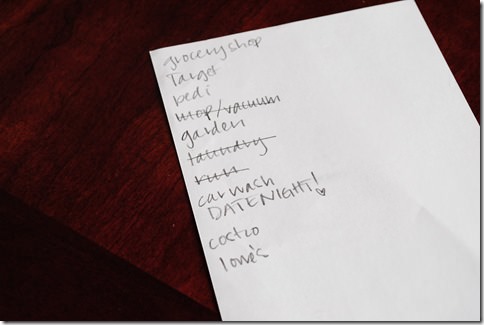 grocery shop
Target
pedi
mop/vacuum
garden
laundry
run
car wash
DATE NIGHT!
costco
lowe's